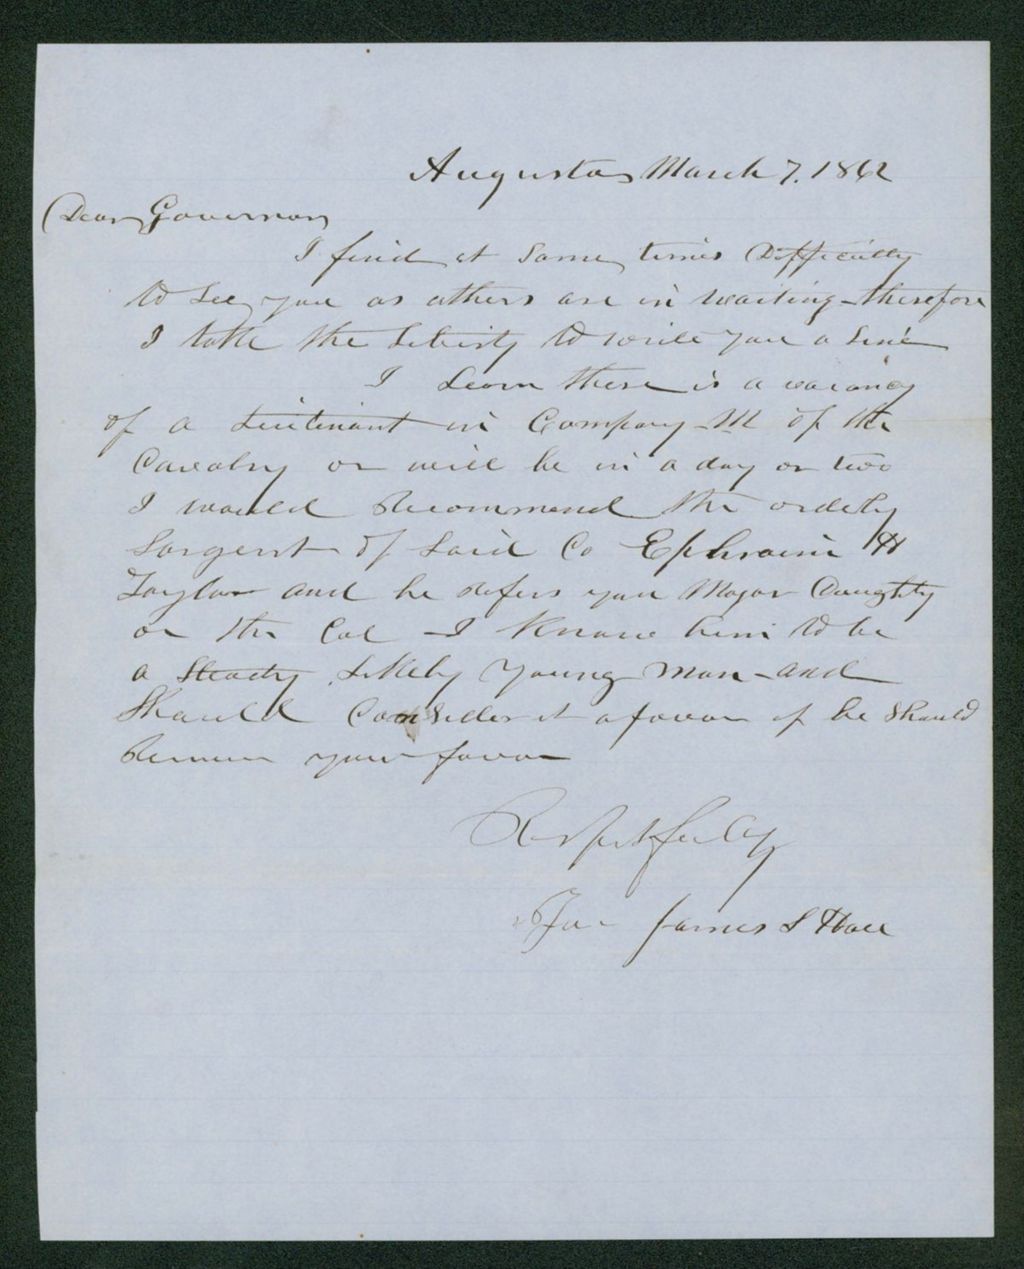 Augusta March 7. 1862
Dear Governor
I find at Some times Difficulty
to See you as others are in waiting - therefore
I take the Liberty to write you a Line
I Learn there is a vacancy
of a Lieutenant in Company M of the
Cavalry or will be in a day or two
I would Recommend the orderly
Sargent of Said Co Ephraim H
Taylor and he Refers you Major Doughty
or the Col - I Know him to be
a Steady Likely Young man - and
Should Consider it a favor if he Should
your favor
Respectfully
James S Hall